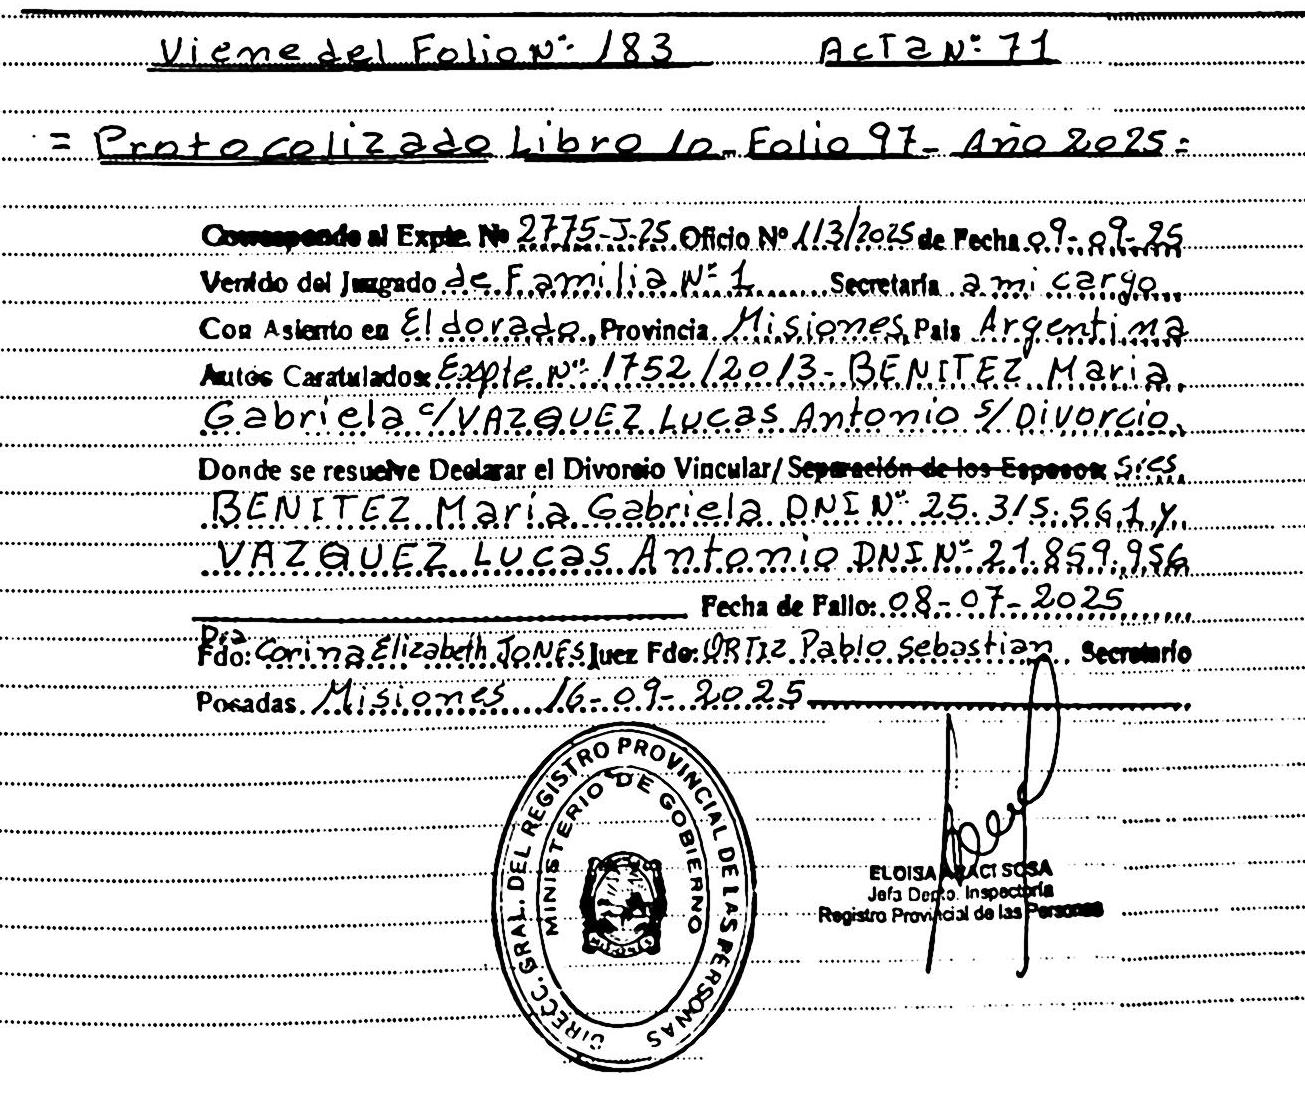 Viene del Folio Nº 183 Acta Nº 71
= Protocolizado Libro 10 - Folio 97 - Año 2025 =
Corresponde al Expte. Nº 2775-J-25 Oficio Nº 113/2025 de Fecha 09-09-25
Venido del Juzgado de Familia Nº 1 Secretaría a mi cargo
Con Asiento en Eldorado, Provincia Misiones, País Argentina
Autos Caratulados: Expte. Nº 1752/2013 - BENITEZ Maria
Gabriela c/ VAZQUEZ Lucas Antonio s/ Divorcio,
Donde se resuelve Declarar el Divorcio Vincular/ Separación de los Esposos: sres.
BENITEZ María Gabriela DNI Nº 25.315.561 y
VAZQUEZ Lucas Antonio DNI Nº 21.859.956
Fecha de Fallo: 08-07-2025
Dra
Fdo: Corina Elizabeth JONES Juez Fdo: ORTIZ Pablo Sebastian Secretario
Posadas Misiones 16-09-2025
DIRECC. GRAL. DEL REGISTRO PROVINCIAL DE LAS PERSONAS
MINISTERIO DE GOBIERNO
ELOISA ARACI SOSA
Jefa Depto. Inspectoría
Registro Provincial de las Personas